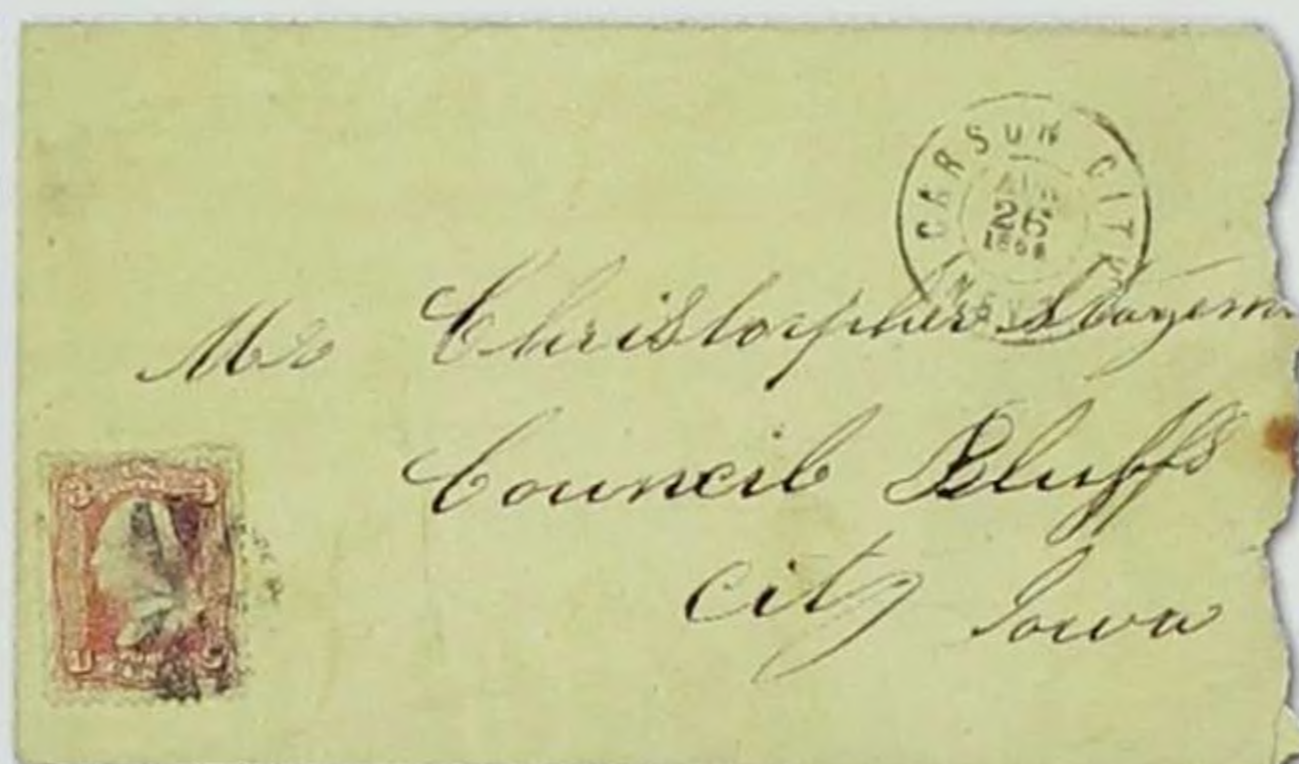 CARSON CITY
AUG
26
186
NEV.
Mr Christopher
Council Bluffs
City Iowa